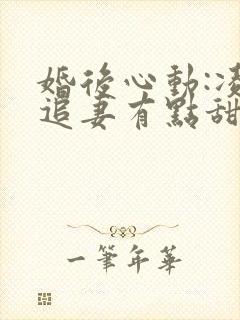 婚後心動:凌
追妻有點甜
一筆年華